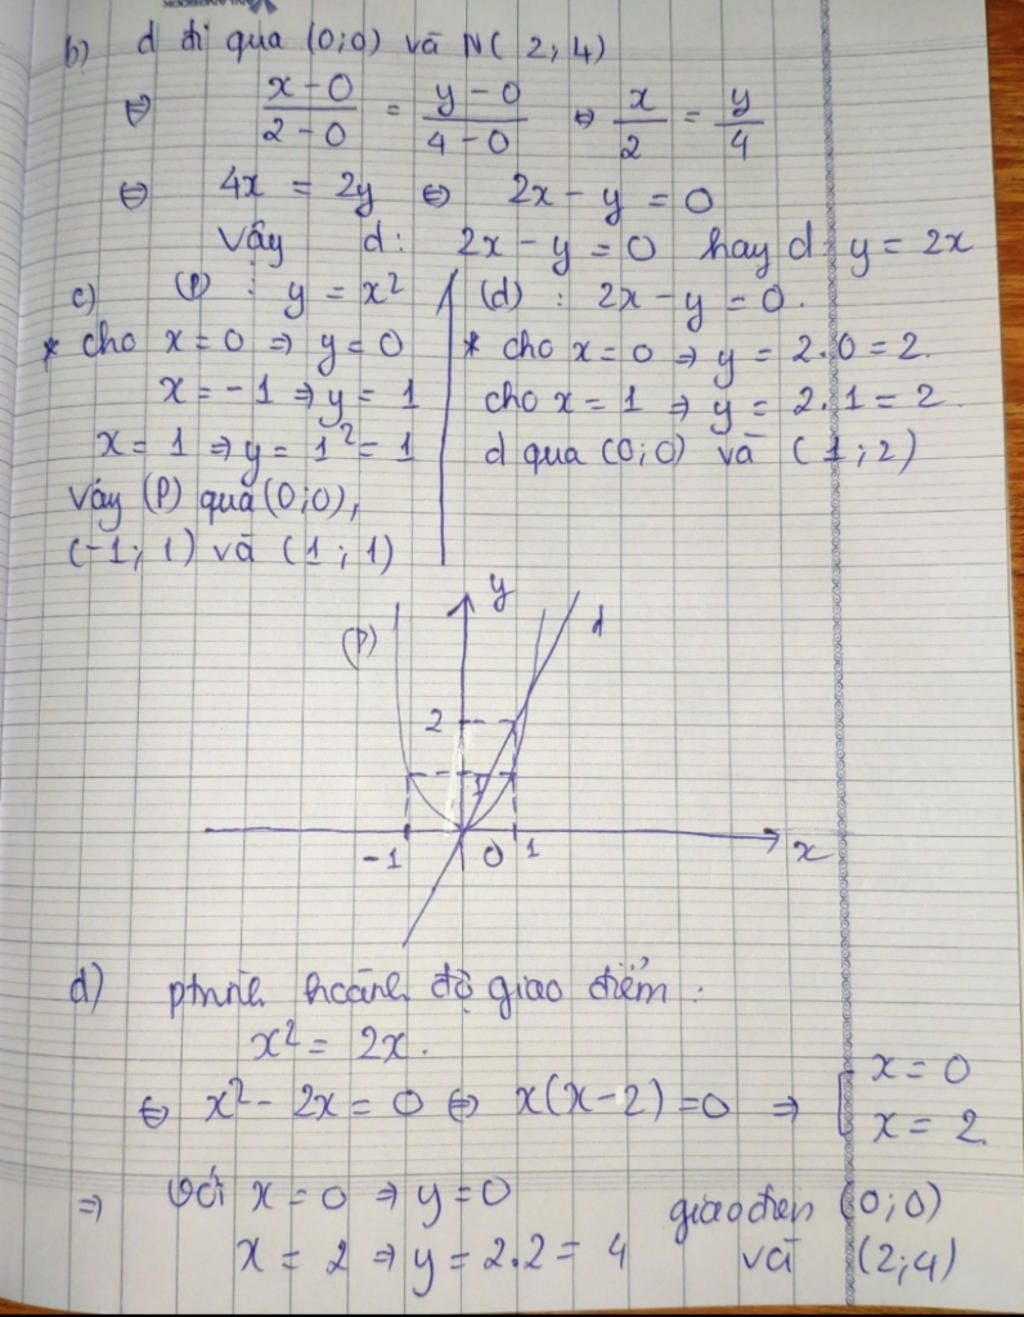 b) d đi qua (0;0) và N(2;4)
⇔ (x-0)/(2-0) = (y-0)/(4-0) ⇔ x/2 = y/4
⇔ 4x = 2y ⇔ 2x - y = 0
Vậy d: 2x - y = 0 hay d: y = 2x
c) (P) : y = x²
* cho x = 0 ⇒ y = 0
x = -1 ⇒ y = 1
x = 1 ⇒ y = 1² = 1
Vậy (P) qua (0;0),
(-1; 1) và (1; 1)
(d) : 2x - y = 0.
* cho x = 0 ⇒ y = 2.0 = 2.
cho x = 1 ⇒ y = 2.1 = 2.
d qua (0;0) và (1;2)
y
(P)
d
2
1
-1
0
1
x
d) ptrình hoành độ giao điểm :
x² = 2x.
⇔ x² - 2x = 0 ⇔ x(x-2) = 0 ⇒ [ x = 0
x = 2
⇒ Với x = 0 ⇒ y = 0
x = 2 ⇒ y = 2.2 = 4
giao điểm (0;0)
và (2;4)